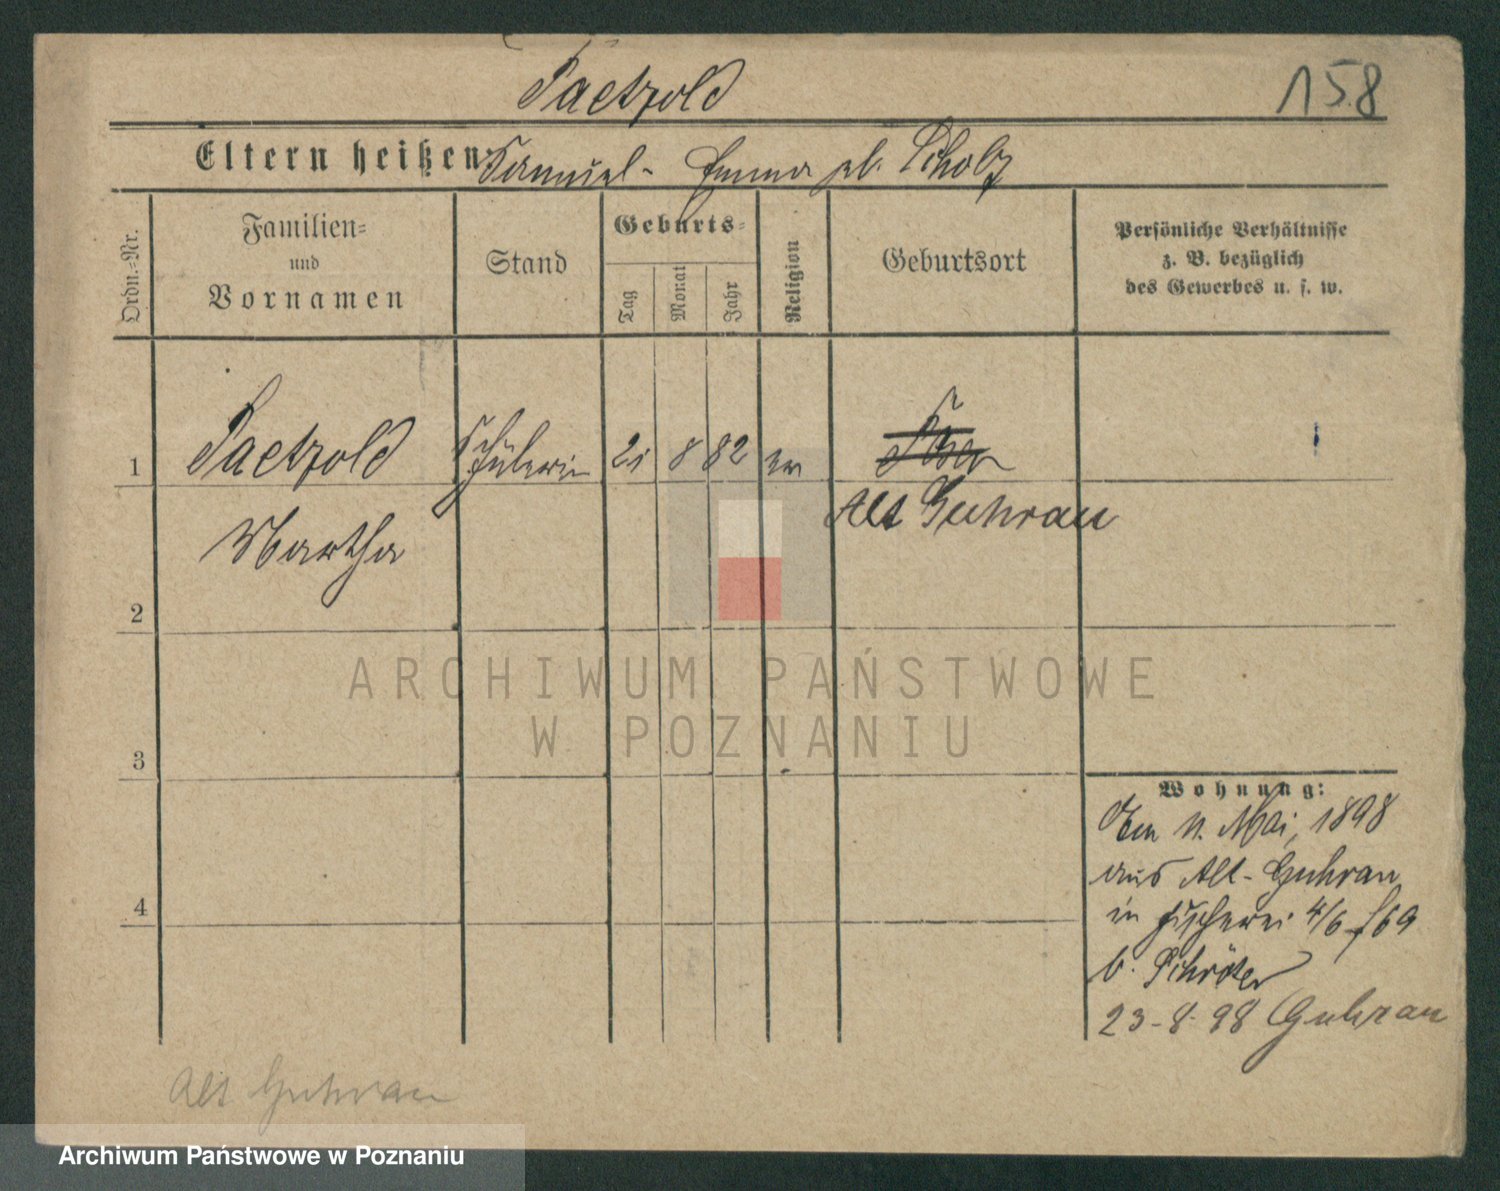 Paetzold
158
Eltern heißen: Samuel - Emma geb. Scholz
Ordn.-Nr.
Familien-
und
Vornamen
Stand
Geburts-
Tag
Monat
Jahr
Religion
Geburtsort
Persönliche Verhältnisse
z. B. bezüglich
des Gewerbes u. s. w.
1 Paetzold Schülerin 21 8 82 ev Posen
Alt Guhrau
Martha
2
3
4
ARCHIWUM PAŃSTWOWE
W POZNANIU
Wohnung:
Den 11. Mai, 1898
aus Alt-Guhrau
in Fischerei 4/6 f69
b. Schröter
23-8-98 Guhrau
Alt Guhrau
Archiwum Państwowe w Poznaniu